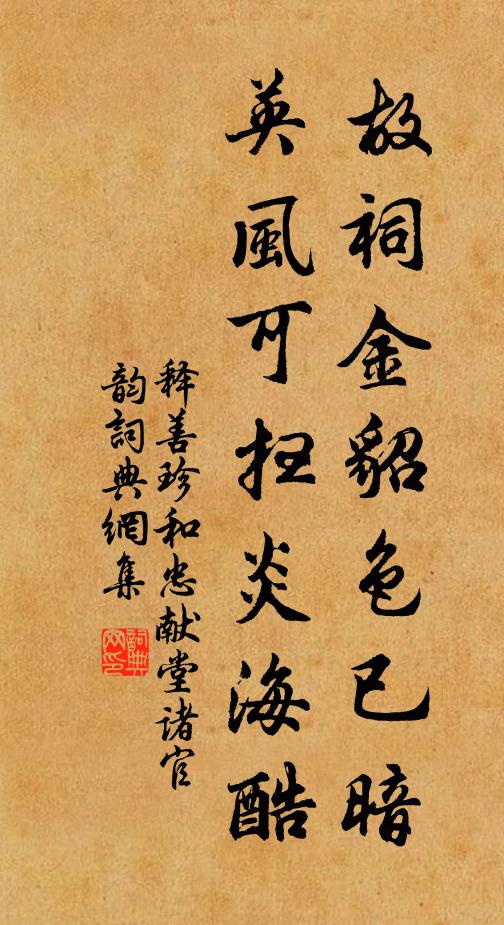 故祠金貂色已暗
英風可扫炎海酷
释善珍和忠献堂诸官
韵詞典網集
詞典网印